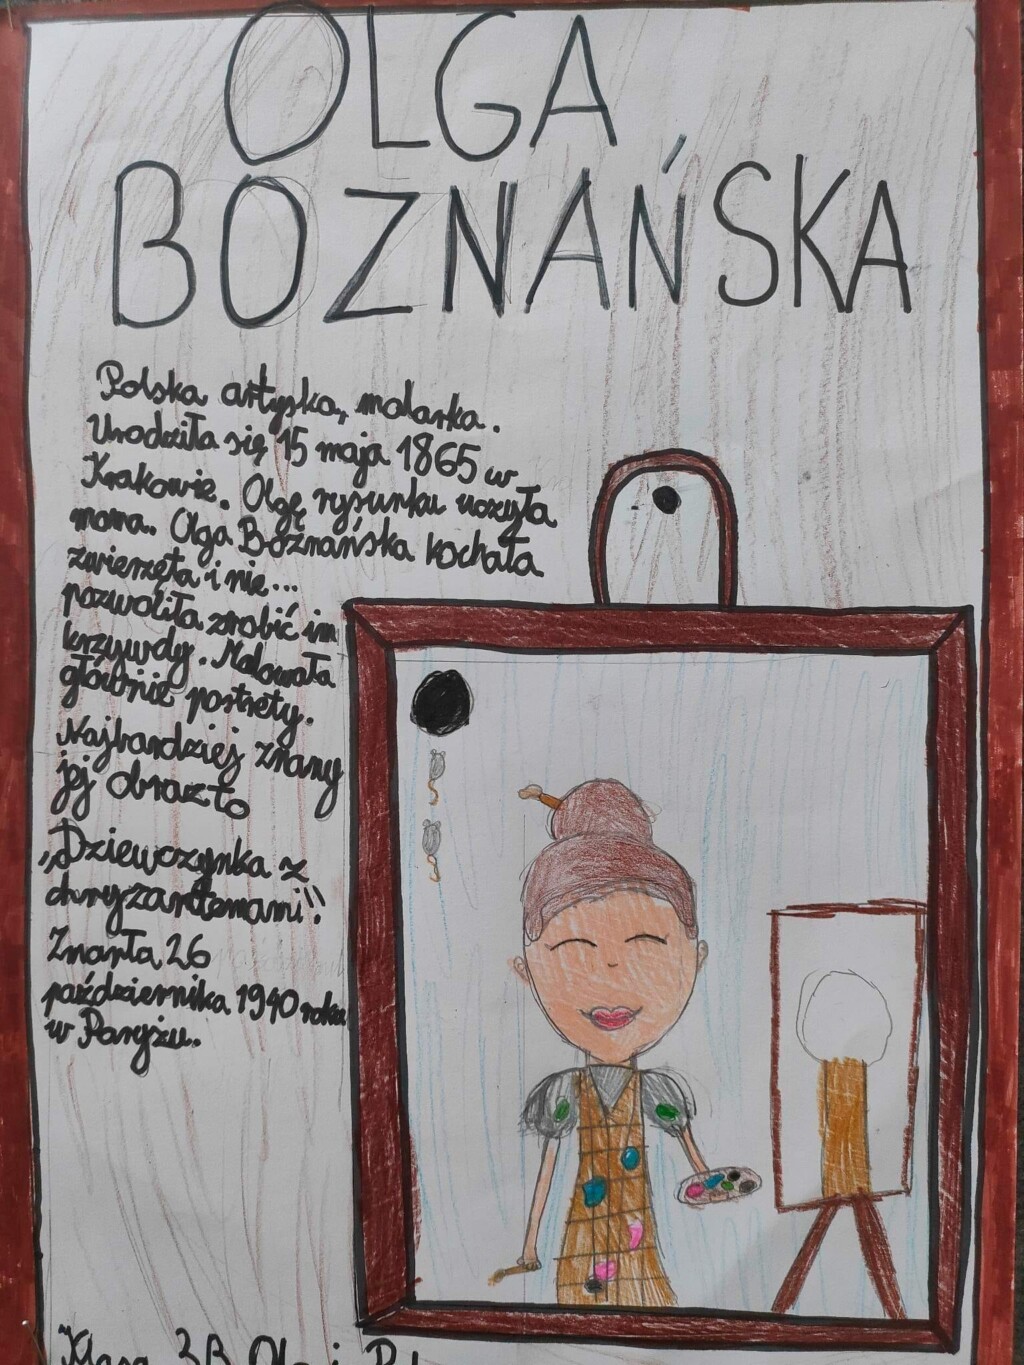 OLGA
BOZNAŃSKA
Polska artyska, malarka.
Urodziła się 15 maja 1865 w
Krakowie. Olgę rysunku uczyła
mama. Olga Boznańska kochała
zwierzęta i nie...
pozwoliła zrobić im
krzywdy. Malowała
głównie portrety.
Najbardziej znany
jej obraz to
„Dziewczynka z
chryzantemami".
Zmarła 26
października 1940 roku
w Paryżu.
Klasa 3B Ola i